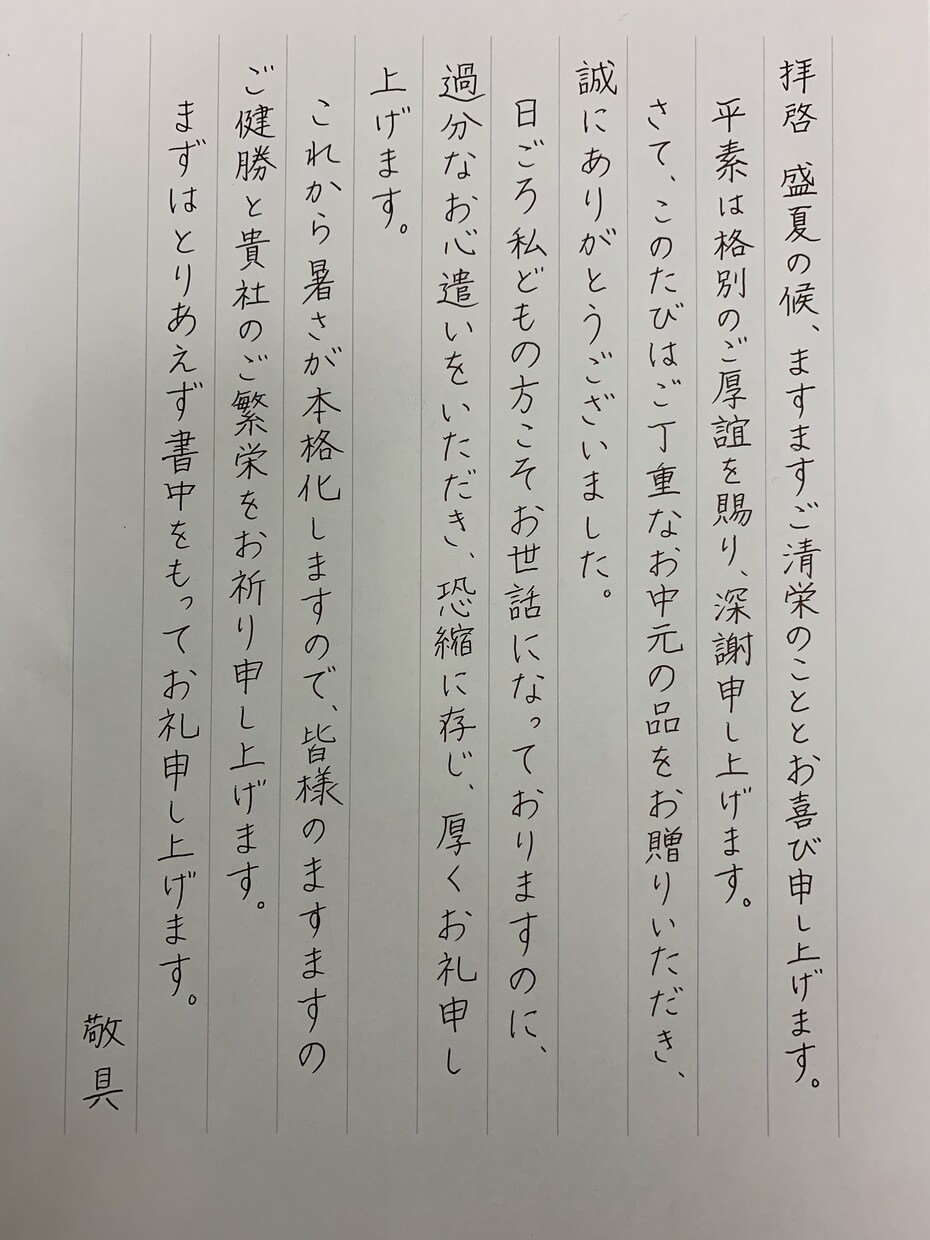 拝啓　盛夏の候、ますますご清栄のこととお喜び申し上げます。
平素は格別のご厚誼を賜り、深謝申し上げます。
さて、このたびはご丁重なお中元の品をお贈りいただき、
誠にありがとうございました。
日ごろ私どもの方こそお世話になっておりますのに、
過分なお心遣いをいただき、恐縮に存じ、厚くお礼申し
上げます。
これから暑さが本格化しますので、皆様のますますの
ご健勝と貴社のご繁栄をお祈り申し上げます。
まずはとりあえず書中をもってお礼申し上げます。
敬具